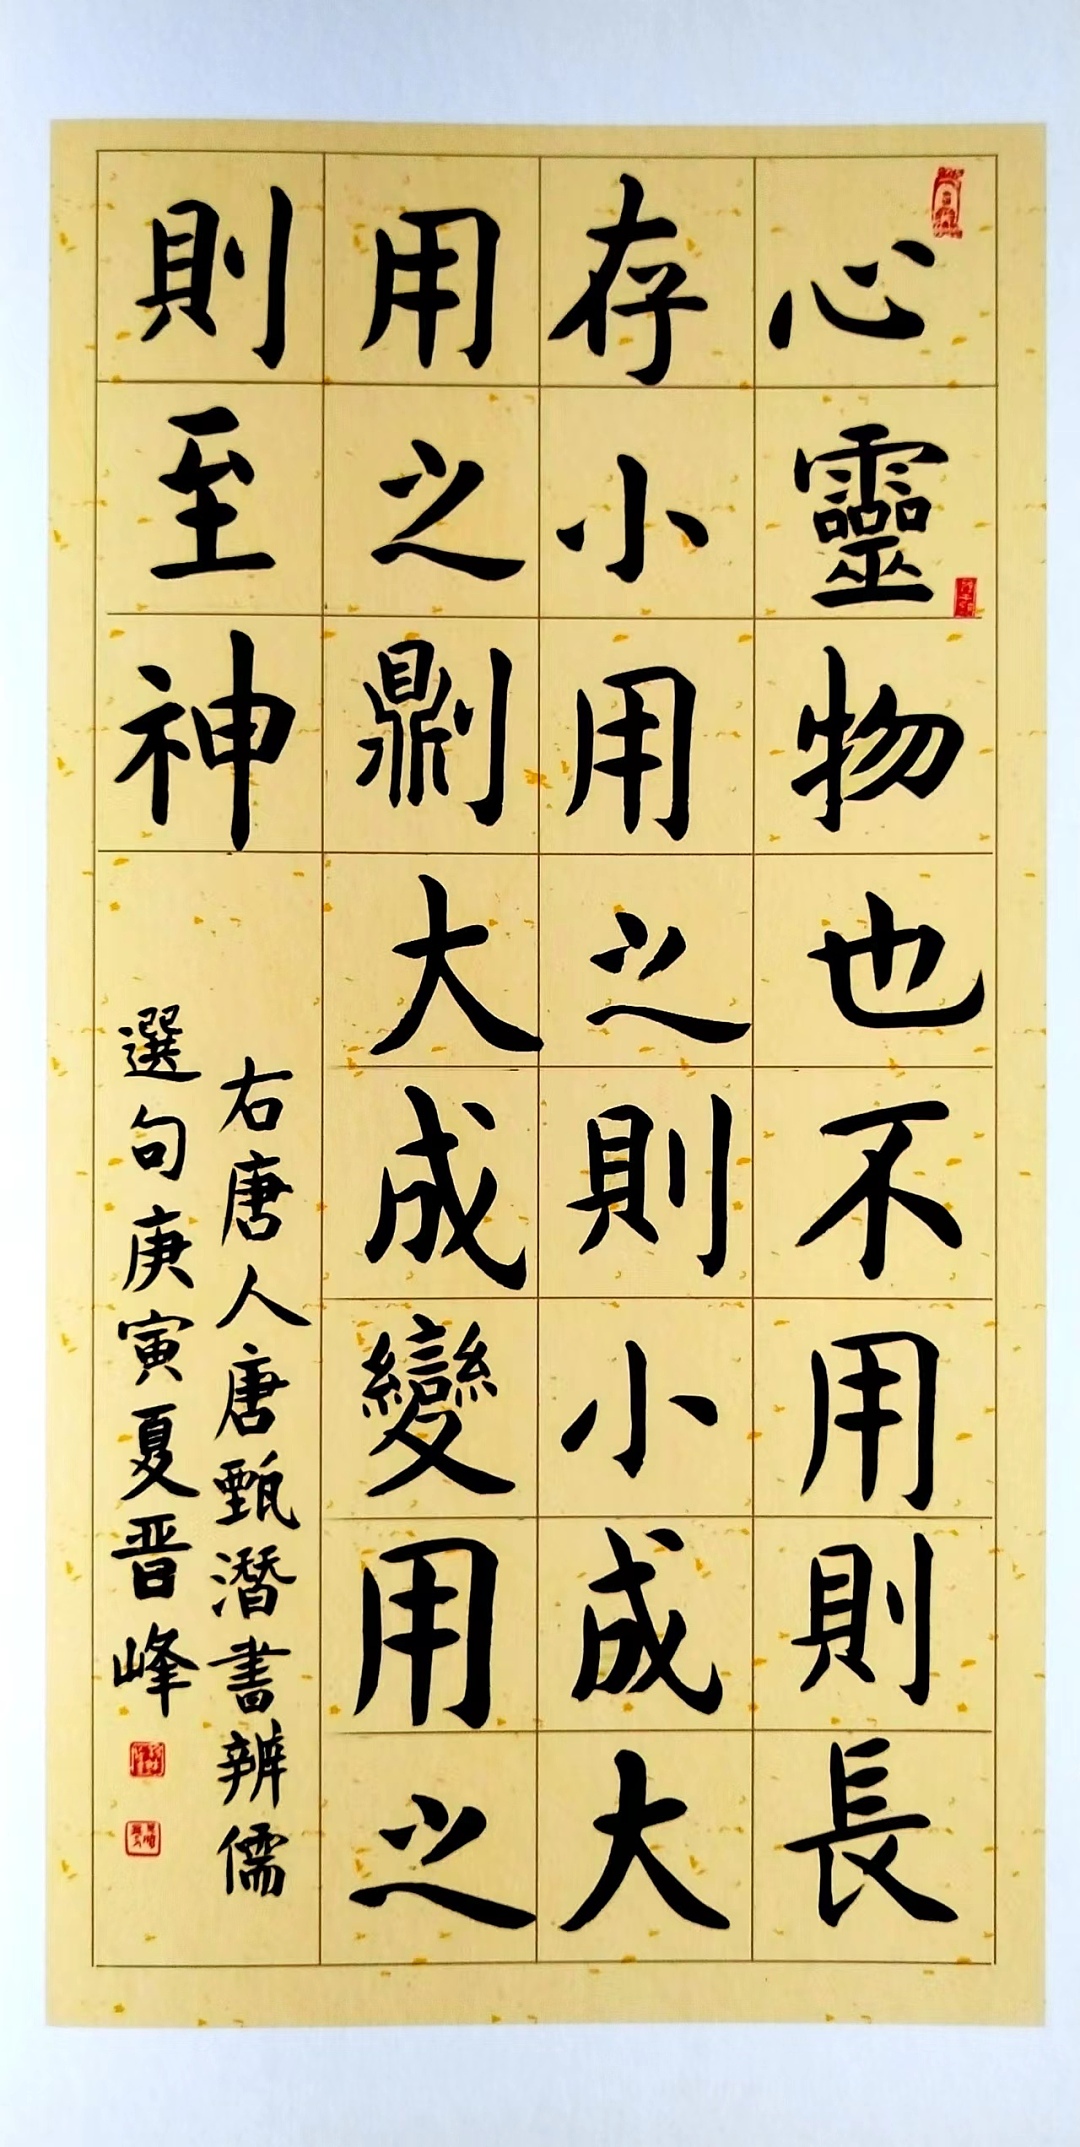 心靈物也不用則長
存小用之則小成大
用之鼎刂大成變用之
則至神
右唐人唐甄潛書辨儒
選句庚寅夏晋峰